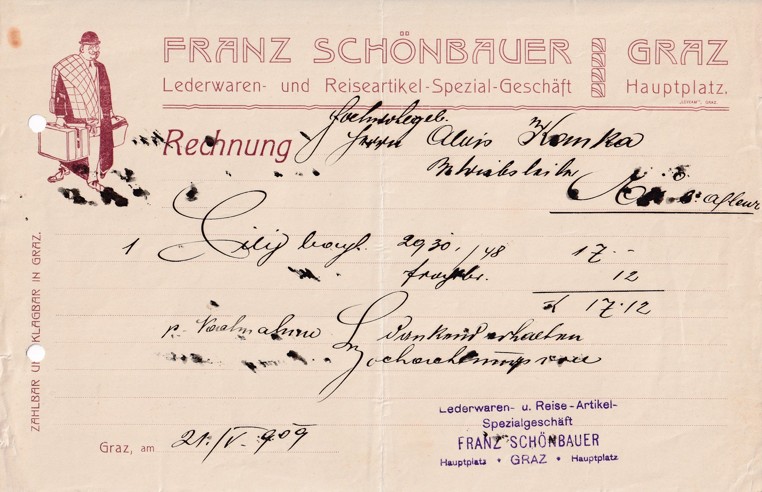 FRANZ SCHÖNBAUER GRAZ
Lederwaren- und Reiseartikel-Spezial-Geschäft Hauptplatz.
Hochwolgeb.
Rechnung Herrn Alois Komka
Betriebsleiter
1 2930/48 17.--
12
K 17.12
p. Nachnahme dankend erhalten
Hochachtungsvoll
ZAHLBAR UND KLAGBAR IN GRAZ.
Graz, am 21./V. 909
Lederwaren- u. Reise-Artikel-
Spezialgeschäft
FRANZ SCHÖNBAUER
Hauptplatz * GRAZ * Hauptplatz